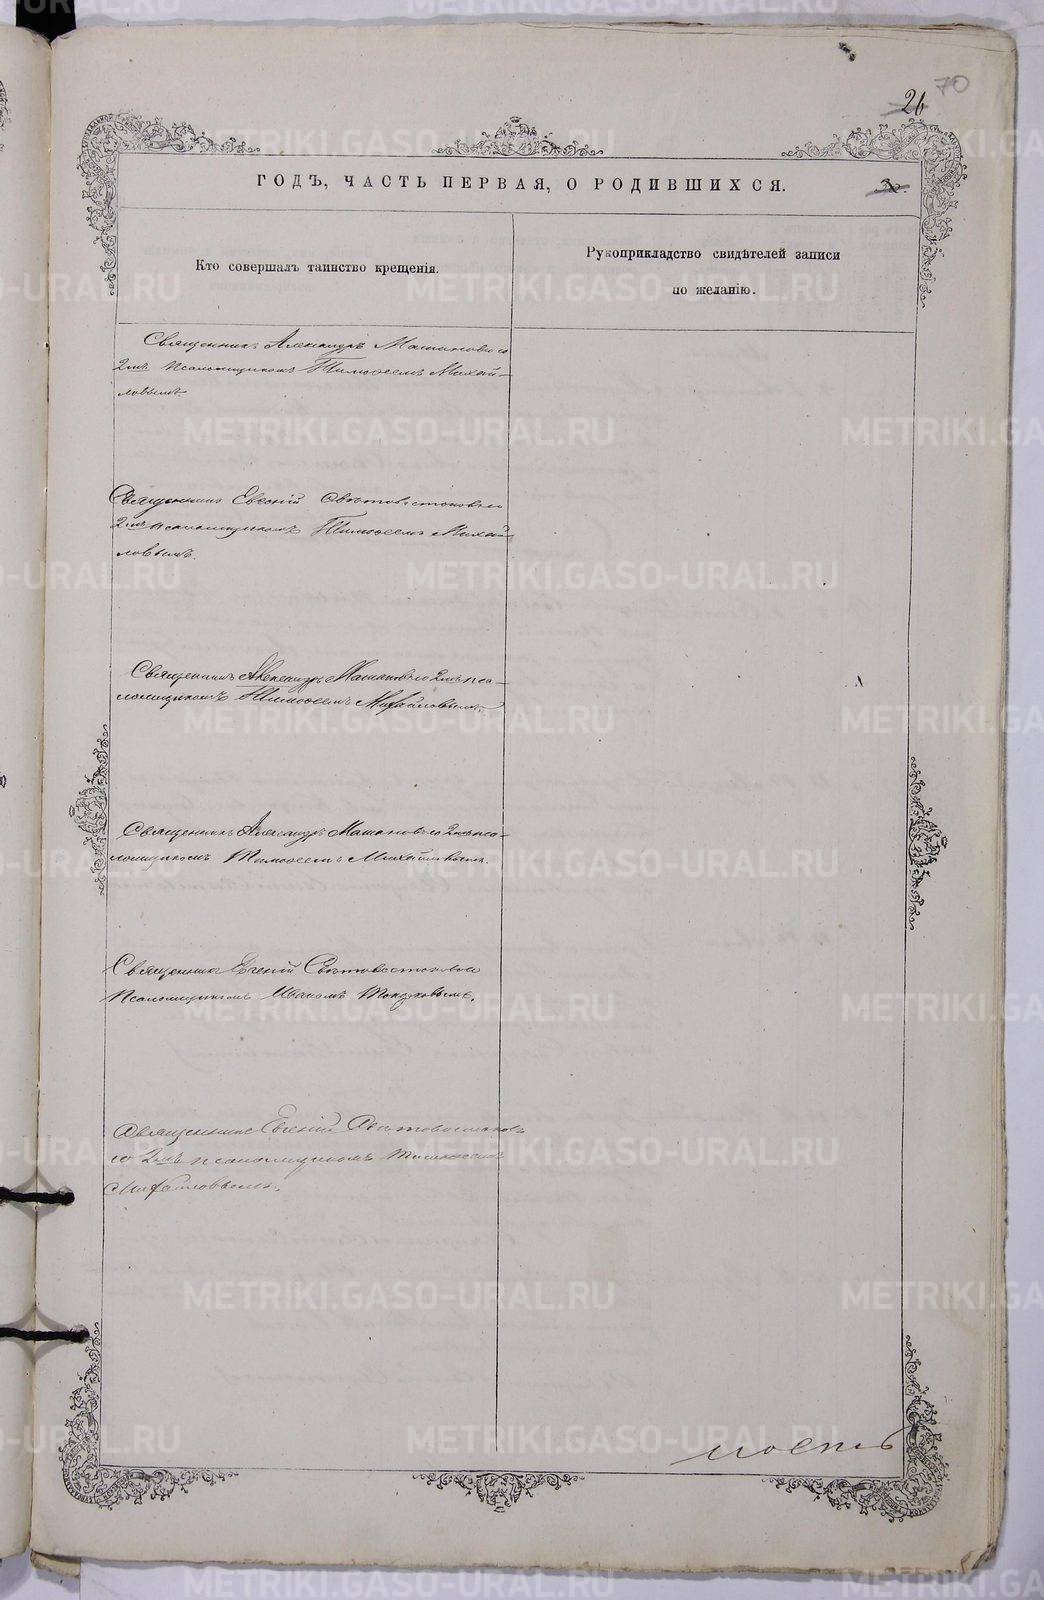 70
26
ГОДЪ, ЧАСТЬ ПЕРВАЯ, О РОДИВШИХСЯ.
Кто совершалъ таинство крещенія.
Рукоприкладство свидѣтелей записи
по желанію.
Священникъ Александръ Машановъ со
2мъ псаломщикомъ Тимоѳеемъ Михай-
ловымъ
Священникъ Евгеній Свѣтовостоковъ со
2мъ псаломщикомъ Тимоѳеемъ Михай-
ловымъ.
Священникъ Александръ Машановъ со 2мъ пса-
ломщикомъ Тимоѳеемъ Михайловымъ.
Священникъ Александръ Машановъ со 2мъ пса-
ломщикомъ Тимоѳеемъ Михайловымъ.
Священникъ Евгеній Свѣтовостоковъ со
Псаломщикомъ Иваномъ
Священникъ Евгеній Свѣтовостоковъ
со 2мъ псаломщикомъ Тимоѳеемъ
Михайловымъ.
METRIKI.GASO-URAL.RU